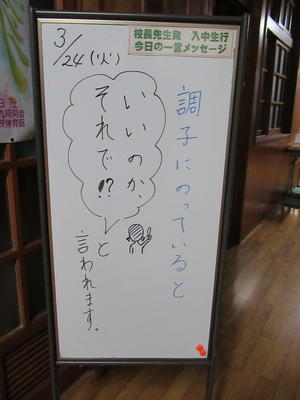 校長先生発 入中生行
今日の一言メッセージ
3/24(火)
調子にのっていると
いいのか、
それで!?
と
言われます。